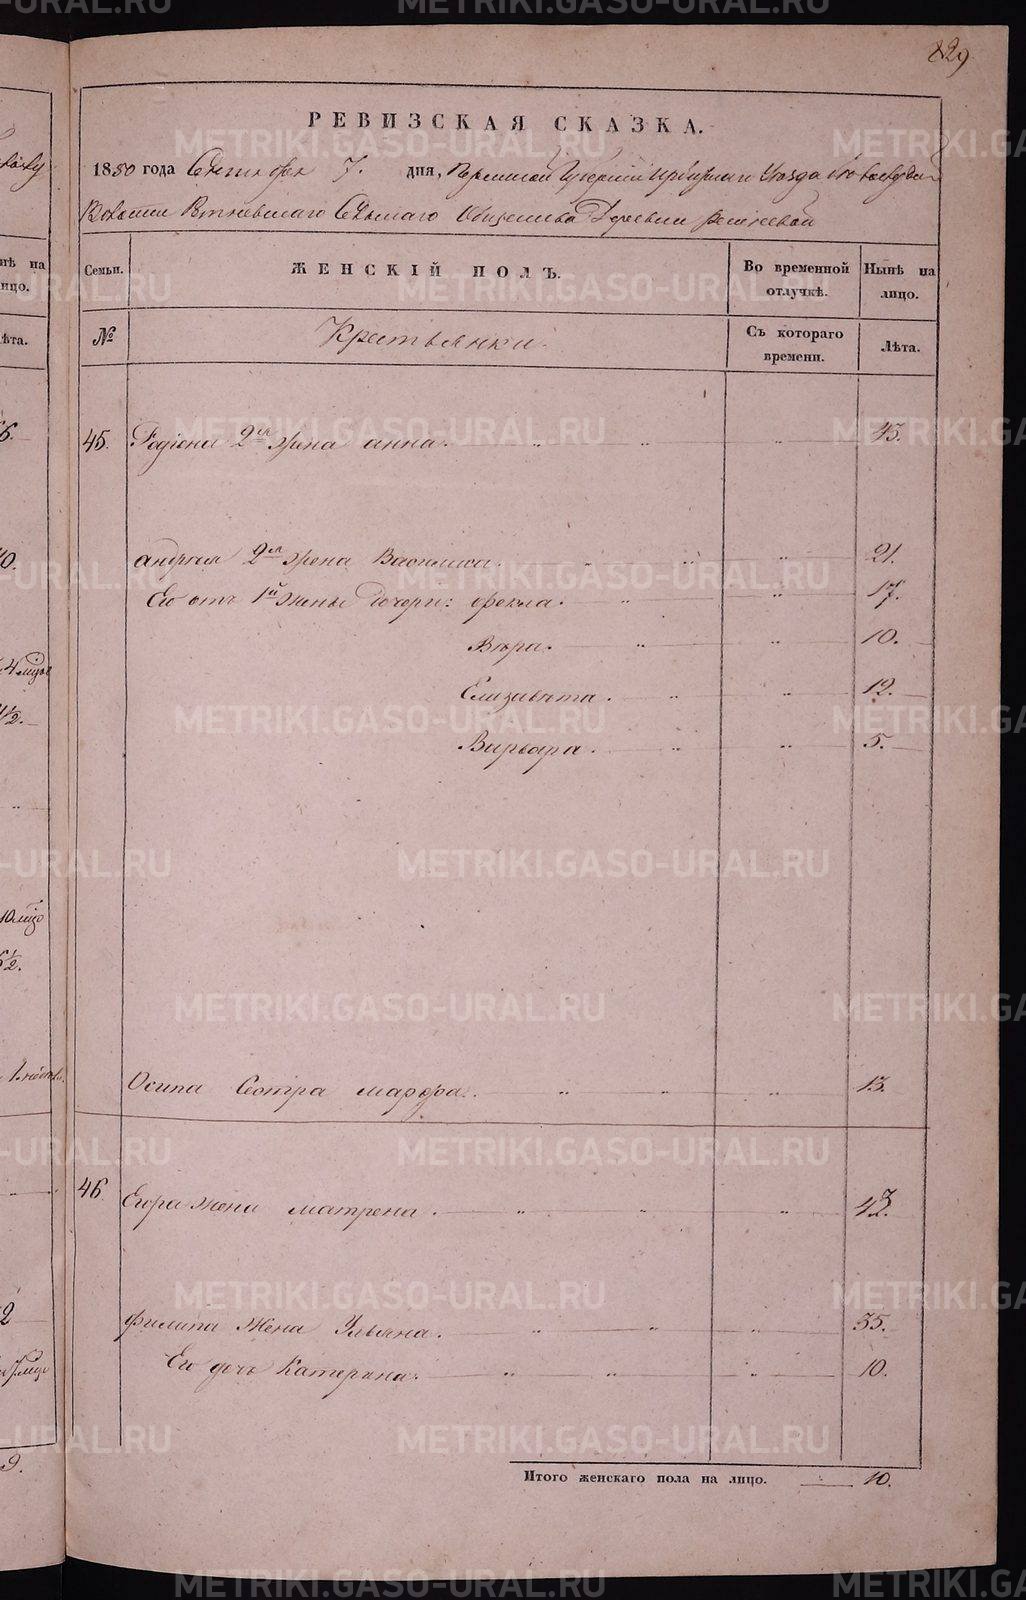 829
РЕВИЗСКАЯ СКАЗКА.
1850 года Сентября 7. дня, Пермской Губернии Ирбитскаго Уезда
Волости Сельскаго Общества Деревни
Семьи. ЖЕНСКІЙ ПОЛЪ. Во временной отлучкѣ. Нынѣ на лицо.
№ Крестьянки. Съ котораго времени. Лѣта.
45. Родіона 2я жена анна. 43.
андрея 2я жена Василиса. 21.
Его отъ 1й жены дочери: фекла. 17.
Вера. 10.
Елизавета. 12.
Варвара. 5.
Осипа Сестра марфа. 13.
46. Егора жена матрена.
филипа Жена Ульяна. 35.
Его дочь Катерина. 10.
Итого женскаго пола на лицо. 10.
METRIKI.GASO-URAL.RU